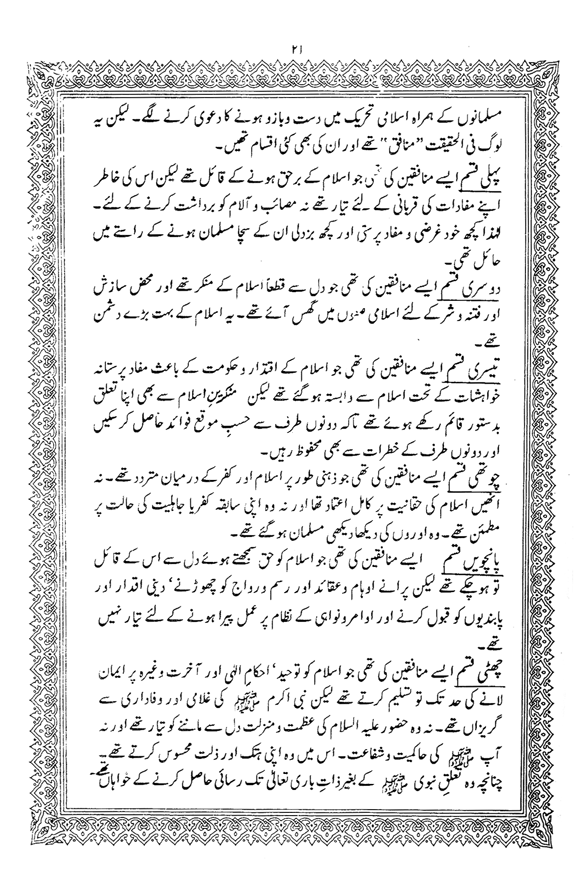 ۲۱
مسلمانوں کے ہمراہ اسلامی تحریک میں دست و بازو ہونے کا دعوی کرنے لگے۔ لیکن یہ
لوگ فی الحقیقت ”منافق“ تھے اور ان کی بھی کئی اقسام تھیں۔
پہلی قسم ایسے منافقین کی تھی جو اسلام کے برحق ہونے کے قائل تھے لیکن اس کی خاطر
اپنے مفادات کی قربانی کے لئے تیار تھے نہ مصائب و آلام کو برداشت کرنے کے لئے۔
لہٰذا کچھ خود غرضی و مفاد پرستی اور کچھ بزدلی ان کے سچا مسلمان ہونے کے راستے میں
حائل تھی۔
دوسری قسم ایسے منافقین کی تھی جو دل سے قطعاً اسلام کے منکر تھے اور محض سازش
اور فتنہ و شر کے لئے اسلامی صفوں میں گھس آئے تھے۔ یہ اسلام کے بہت بڑے دشمن
تھے۔
تیسری قسم ایسے منافقین کی تھی جو اسلام کے اقتدار و حکومت کے باعث مفاد پرستانہ
خواہشات کے تحت اسلام سے وابستہ ہو گئے تھے لیکن منکرین اسلام سے بھی اپنا تعلق
بدستور قائم رکھے ہوئے تھے تاکہ دونوں طرف سے حسبِ موقع فوائد حاصل کر سکیں
اور دونوں طرف کے خطرات سے بھی محفوظ رہیں۔
چوتھی قسم ایسے منافقین کی تھی جو ذہنی طور پر اسلام اور کفر کے درمیان متردد تھے۔ نہ
انھیں اسلام کی حقانیت پر کامل اعتماد تھا اور نہ وہ اپنی سابقہ کفر یا جاہلیت کی حالت پر
مطمئن تھے۔ وہ اوروں کی دیکھا دیکھی مسلمان ہو گئے تھے۔
پانچویں قسم ایسے منافقین کی تھی جو اسلام کو حق سمجھتے ہوئے دل سے اس کے قائل
تو ہو چکے تھے لیکن پرانے اوہام و عقائد اور رسم و رواج کو چھوڑنے‘ دینی اقدار اور
پابندیوں کو قبول کرنے اور اوامر و نواہی کے نظام پر عمل پیرا ہونے کے لئے تیار نہیں
تھے۔
چھٹی قسم ایسے منافقین کی تھی جو اسلام کو توحید‘ احکام الٰہی اور آخرت وغیرہ پر ایمان
لانے کی حد تک تو تسلیم کرتے تھے لیکن نبی اکرم ﷺ کی غلامی اور وفاداری سے
گریزاں تھے۔ نہ وہ حضور علیہ السلام کی عظمت و منزلت دل سے ماننے کو تیار تھے اور نہ
آپ ﷺ کی حاکیت و شفاعت۔ اس میں وہ اپنی ہتک اور ذلت محسوس کرتے تھے۔
چنانچہ وہ تعلق نبوی ﷺ کے بغیر ذات باری تعالٰی تک رسائی حاصل کرنے کے خواہاں تھے۔